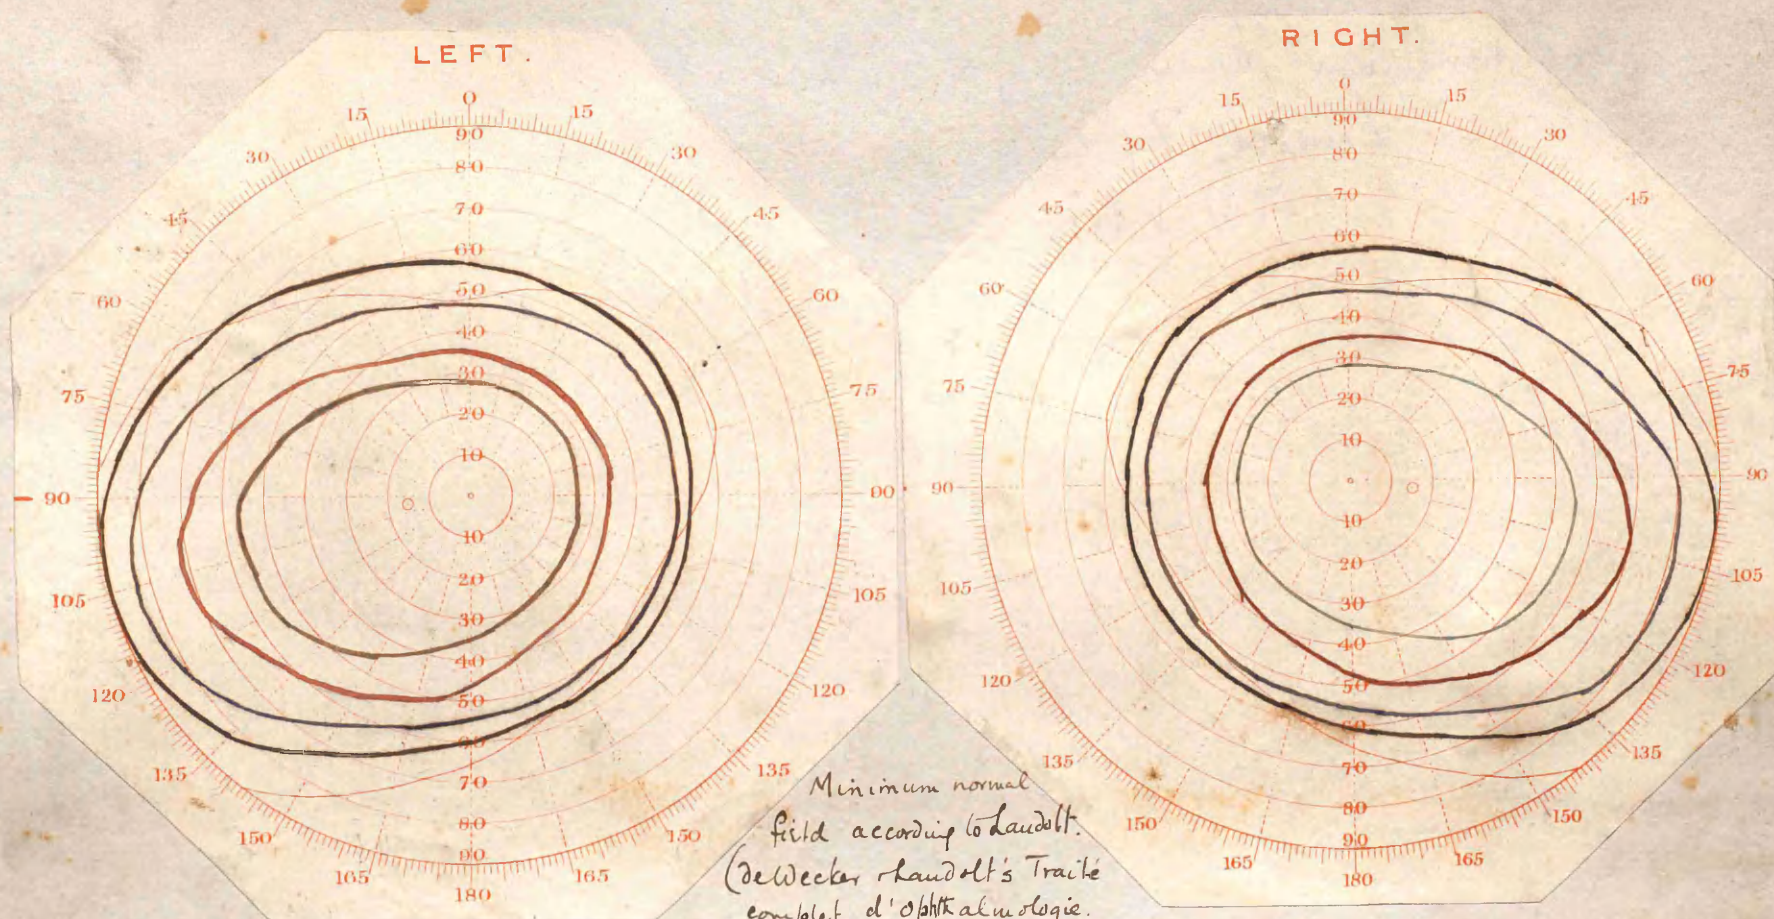 LEFT.
0
15 15
30 30
45 45
60 60
75 75
90 90
105 105
120 120
135 135
150 150
165 165
180
90
80
70
60
50
40
30
20
10
10
20
30
40
50
60
70
80
90
RIGHT.
0
15 15
30 30
45 45
60 60
75 75
90 90
105 105
120 120
135 135
150 150
165 165
180
90
80
70
60
50
40
30
20
10
10
20
30
40
50
60
70
80
90
Minimum normal
field according to Landolt.
(de Wecker & Landolt's Traité
complet d'Ophthalmologie.